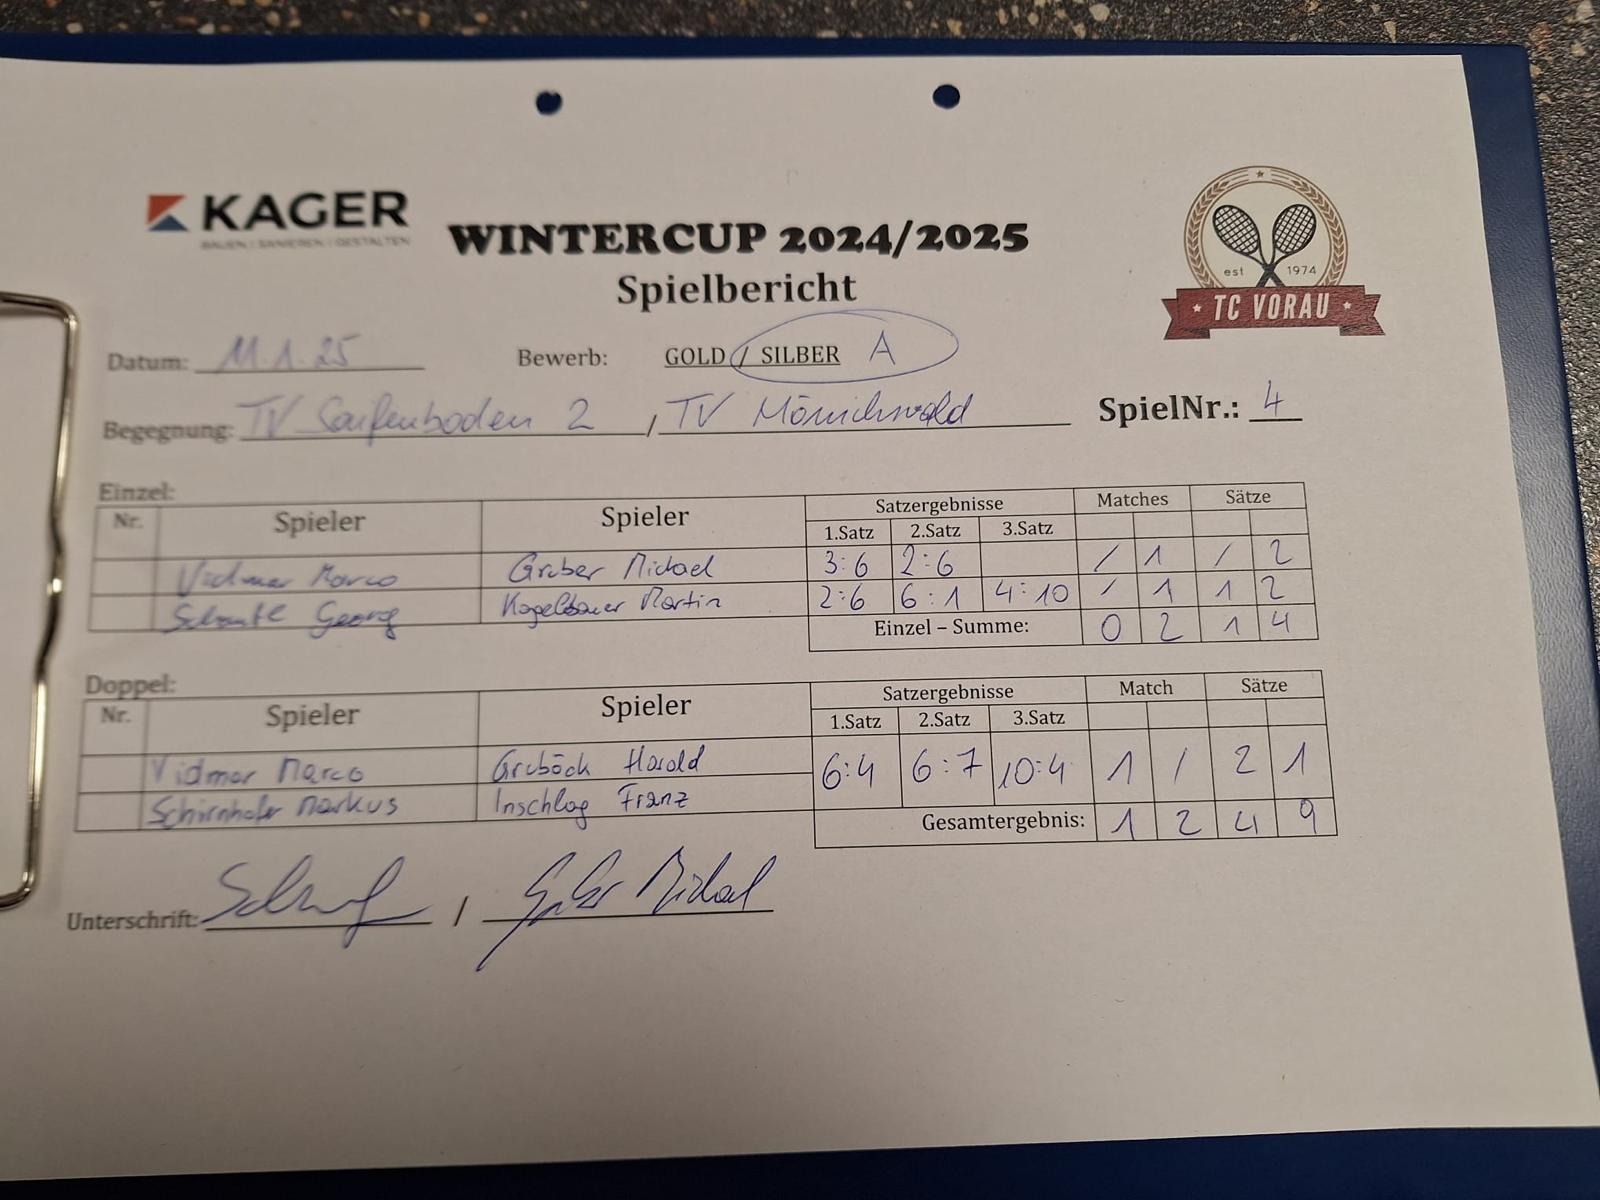 KAGER
BAUEN | SANIEREN | GESTALTEN
WINTERCUP 2024/2025
Spielbericht
est 1974
TC VORAU
Datum: 11.1.25 Bewerb: GOLD / SILBER A
Begegnung: TV Saifenboden 2 / TV Mönichwald SpielNr.: 4
Einzel:
Nr. Spieler Spieler Satzergebnisse Matches Sätze
1.Satz 2.Satz 3.Satz
Vidmar Marco Gruber Michael 3:6 2:6 / 1 / 2
Georg Kogelbauer Martin 2:6 6:1 4:10 / 1 1 2
Einzel – Summe: 0 2 1 4
Doppel:
Nr. Spieler Spieler Satzergebnisse Match Sätze
1.Satz 2.Satz 3.Satz
Vidmar Marco Gruböck Harald 6:4 6:7 10:4 1 / 2 1
Schirnhofer Markus Inschlag Franz
Gesamtergebnis: 1 2 4 9
Unterschrift: / Gruber Michael